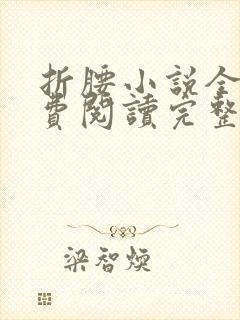 折腰小說全
費閱讀完整
梁智煐